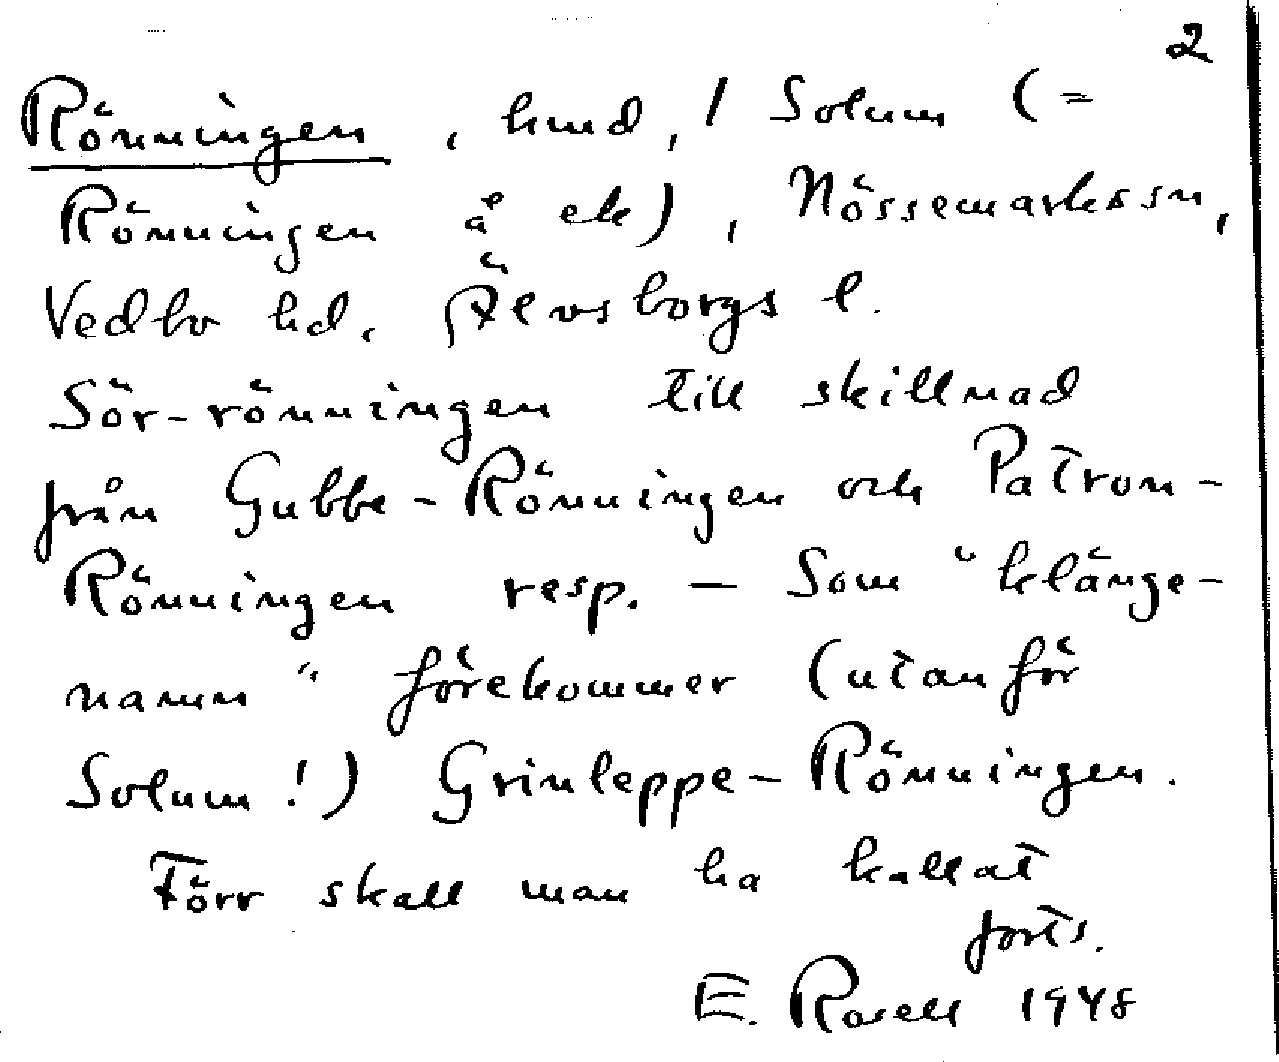 2
Rönningen, hmd, / Solum (=
Rönningen å ek), Nössemarks sn,
Vedbo hd, Älvsborgs l.
Sör-rönningen till skillnad
från Gubbe-Rönningen och Patron-
Rönningen resp. — Som "klänge-
namn" förekommer (utanför
Solum!) Grinleppe-Rönningen.
Förr skall man ha kallat
forts.
E. Rosell 1948